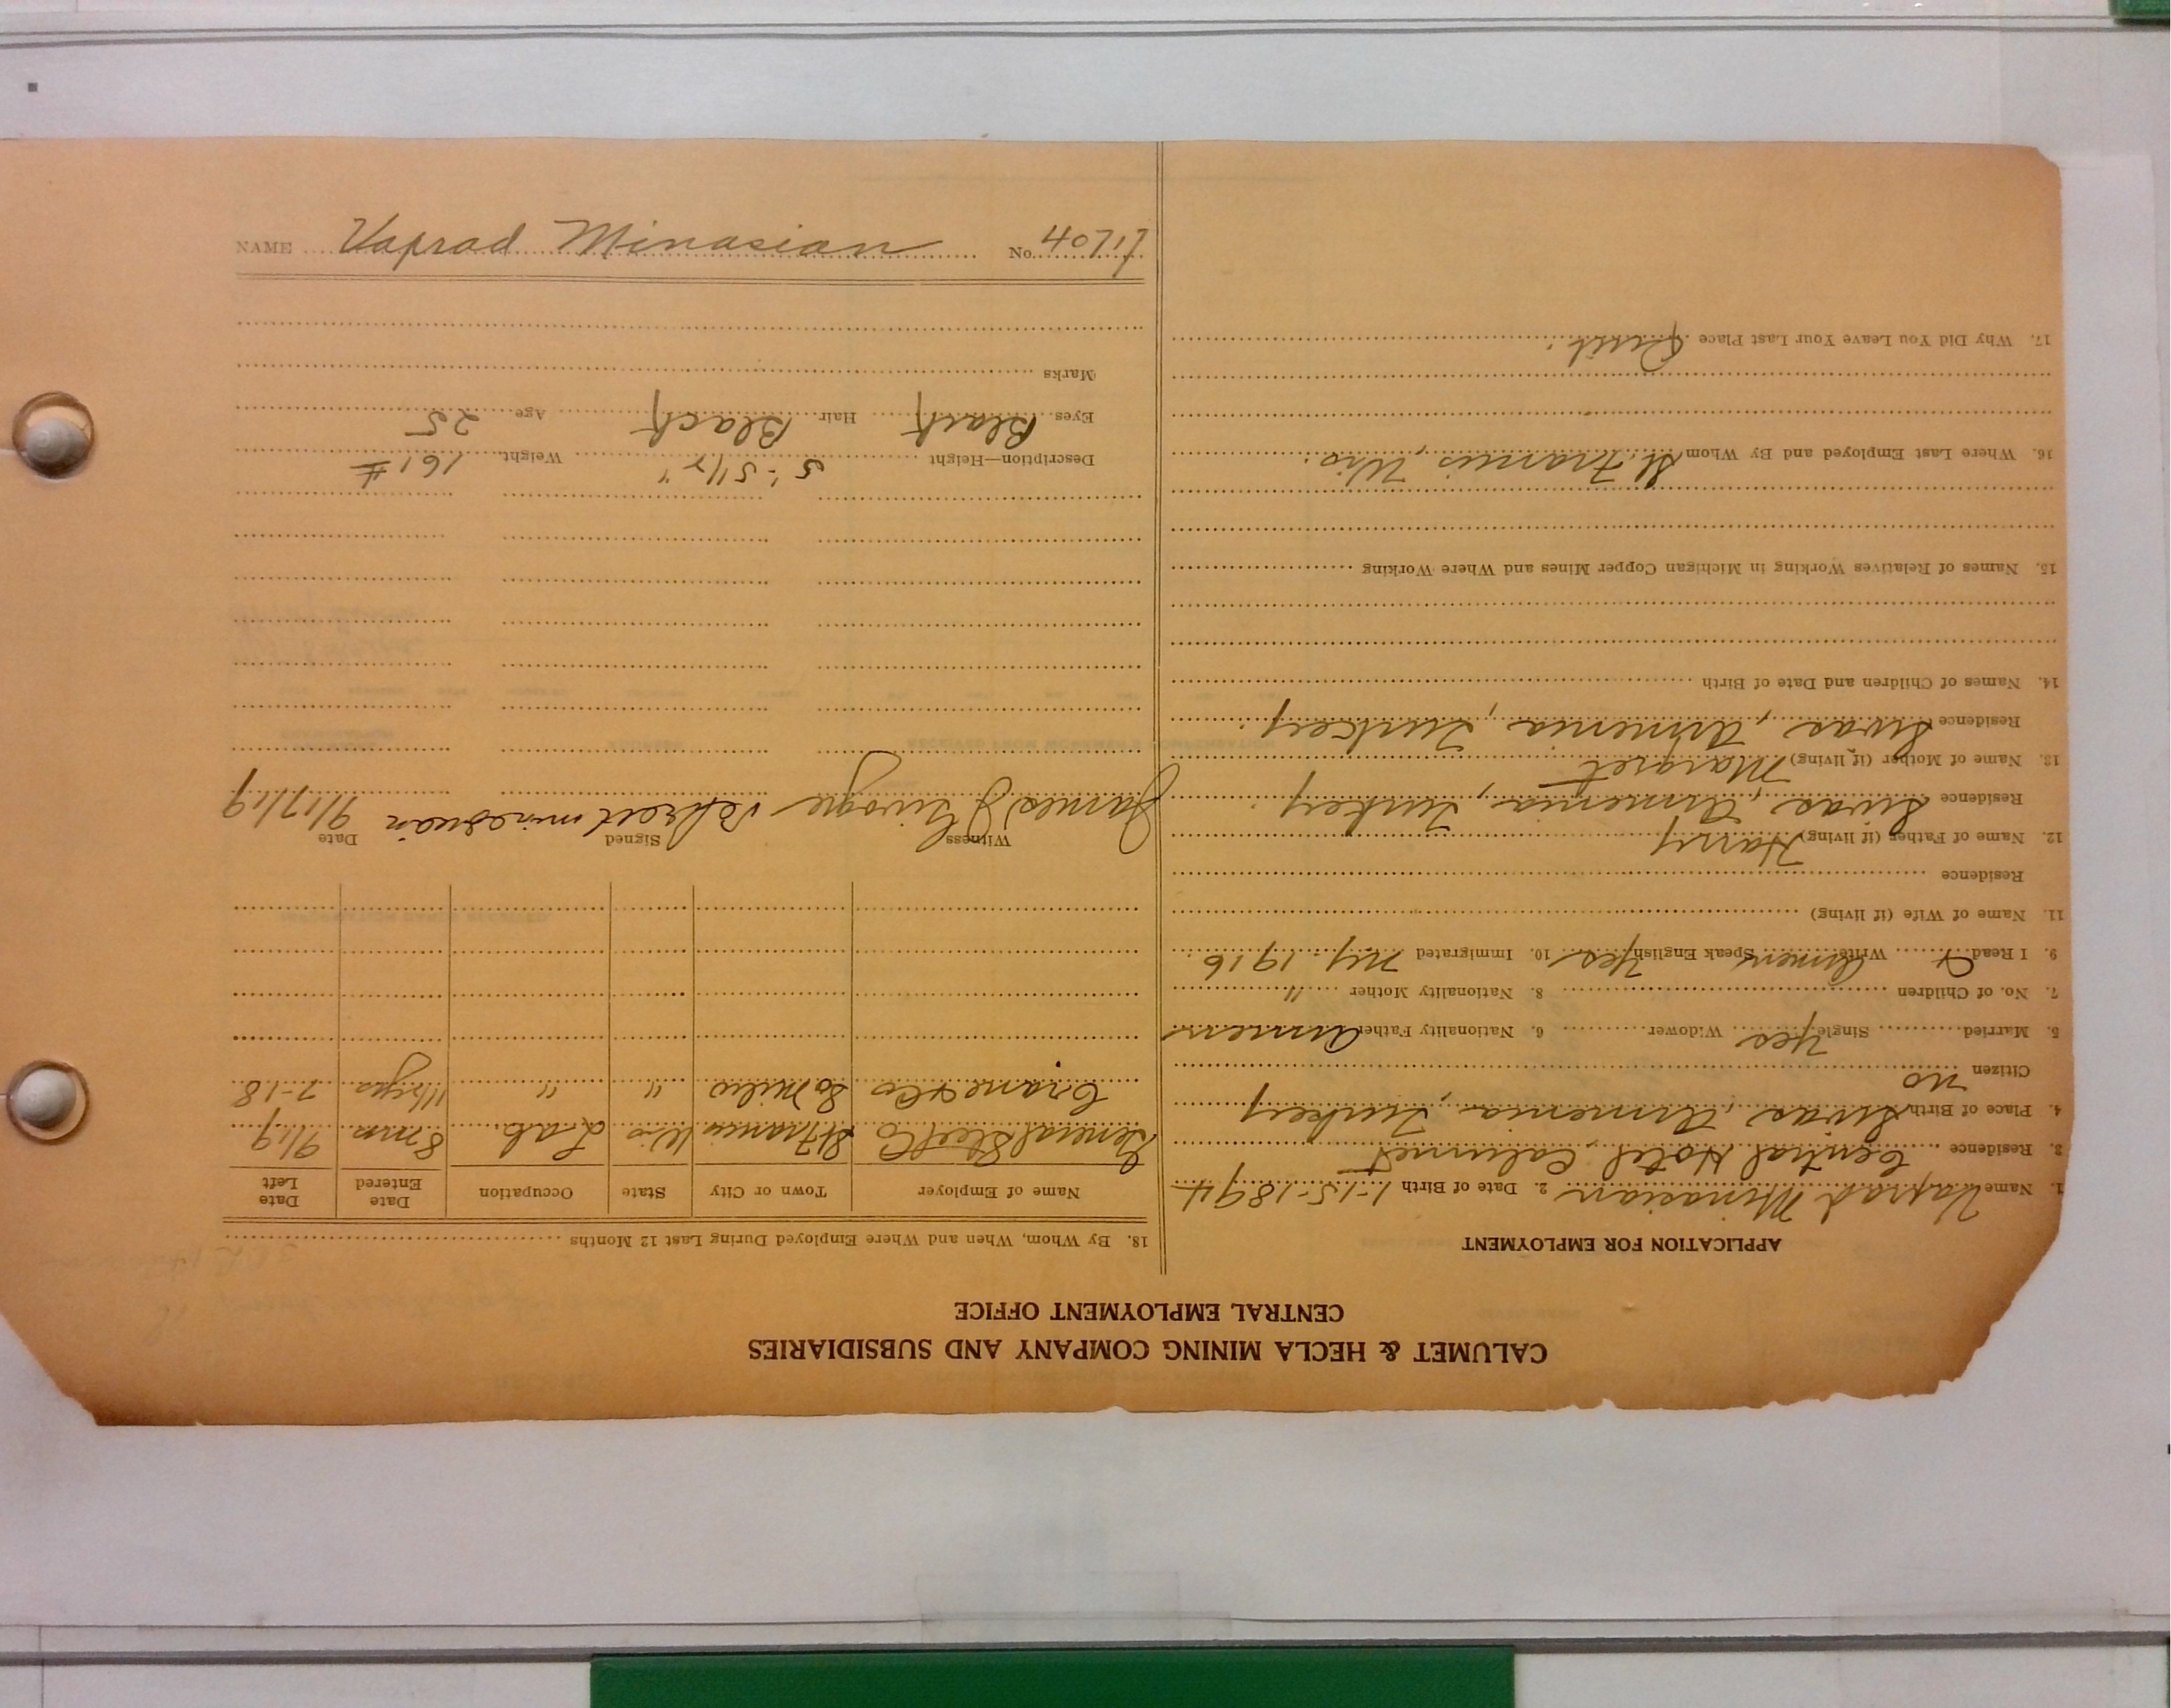 CALUMET & HECLA MINING COMPANY AND SUBSIDIARIES
CENTRAL EMPLOYMENT OFFICE
APPLICATION FOR EMPLOYMENT
1. Name Vaprad Minasian 2. Date of Birth 1-15-1894
3. Residence Central Hotel, Calumet
4. Place of Birth Sivas, Armenia, Turkey
Citizen no
5. Married Single Yes Widower 6. Nationality Father Armen
7. No. of Children 8. Nationality Mother "
9. I Read & Write Armen Speak English Yes 10. Immigrated N.Y. 1916
11. Name of Wife (if living)
Residence
12. Name of Father (if living) Harry
Residence Sivas, Armenia, Turkey.
13. Name of Mother (if living) Margret
Residence Sivas, Armenia, Turkey.
14. Names of Children and Date of Birth
15. Names of Relatives Working in Michigan Copper Mines and Where Working
16. Where Last Employed and By Whom St. Francis, Wis.
17. Why Did You Leave Your Last Place Quit.
18. By Whom, When and Where Employed During Last 12 Months
Name of Employer Town or City State Occupation Date Entered Date Left
General Steel Co St Francis Wis Lab. 8 mos 9/19
Crane & Co So Milw " " 7-18
Witness Signed Date
James minesuian 9/17/19
Description—Height 5'-5 1/2" Weight 161 #
Eyes Black Hair Black Age 25
Marks
NAME Vaprad Minasian No. 40717